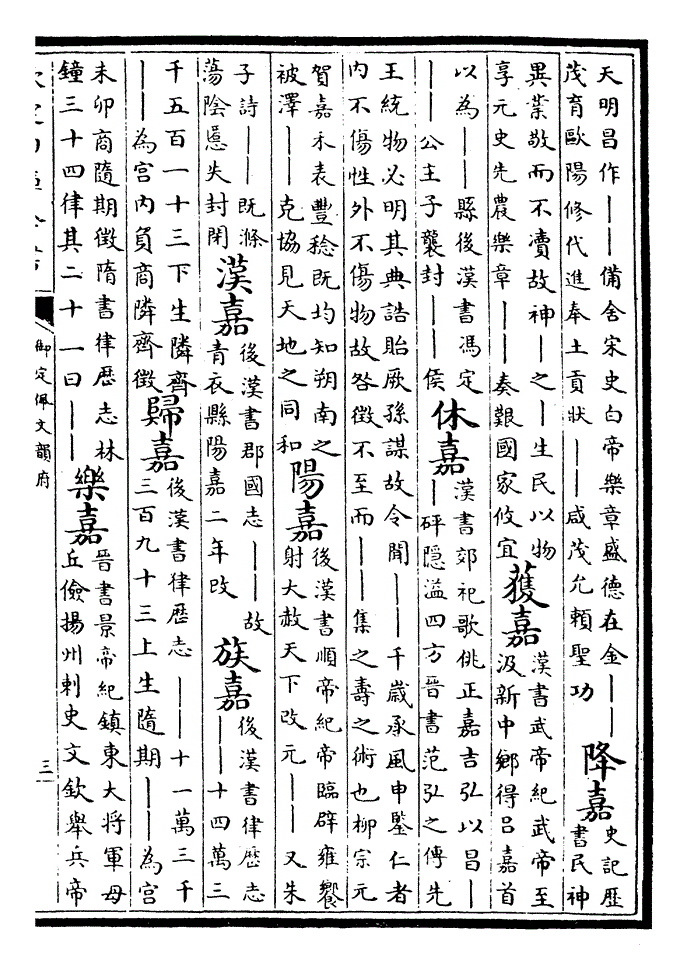 天明昌作——備舍宋史白帝樂章盛德在金——
茂育歐陽修代進奉土貢狀——咸茂允頼聖功
降嘉
史記歴
書民神
異業敬而不凟故神—之—生民以物
享元史先農樂章——奏艱國家攸宜
獲嘉
漢書武帝紀武帝至
汲新中鄉得吕嘉首
以為——縣後漢書馮定
——公主子襲封——侯
休嘉
漢書郊祀歌佻正嘉吉弘以昌—
—砰隠溢四方晉書范弘之傳先
王統物必明其典誥貽厥孫謀故令聞——千歳承風申鑒仁者
内不傷性外不傷物故咎徵不至而——集之壽之術也柳宗元
賀嘉禾表豐稔既均知朔南之
被澤——克協見天地之同和
陽嘉
後漢書順帝紀帝臨辟雍饗
射大赦天下改元——又朱
子詩——既滌
蕩陰慝失封閉
漢嘉
後漢書郡國志——故
青衣縣陽嘉二年改
族嘉
後漢書律歴志
——十四萬三
千五百一十三下生隣齊
——為宫内負商隣齊徵
歸嘉
後漢書律歴志——十一萬三千
三百九十三上生隨期——為宫
未卯商隨期徵隋書律歴志林
鐘三十四律其二十一曰——
樂嘉
晉書景帝紀鎮東大將軍毋
丘儉揚州刺史文欽舉兵帝
御定佩文韻府
三